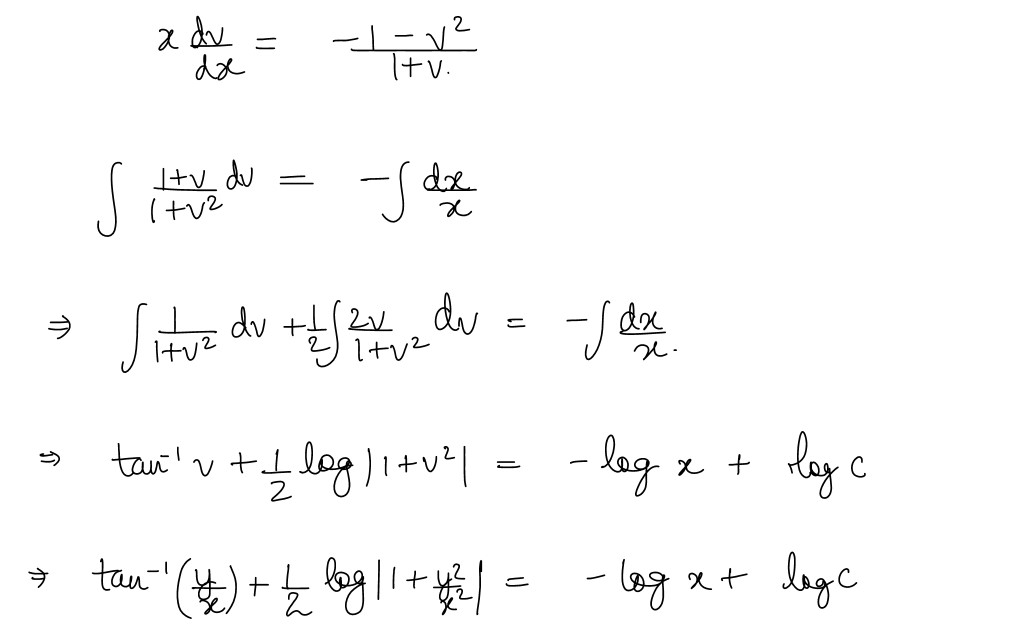 x dv/dx = (-1 - v²)/(1+v.)
∫ (1+v)/(1+v²) dv = -∫ dx/x
⇒ ∫ 1/(1+v²) dv + 1/2 ∫ 2v/(1+v²) dv = -∫ dx/x.
⇒ tan⁻¹ v + 1/2 log |1+v²| = - log x + log c
⇒ tan⁻¹ (y/x) + 1/2 log |1 + y²/x²| = - log x + log c